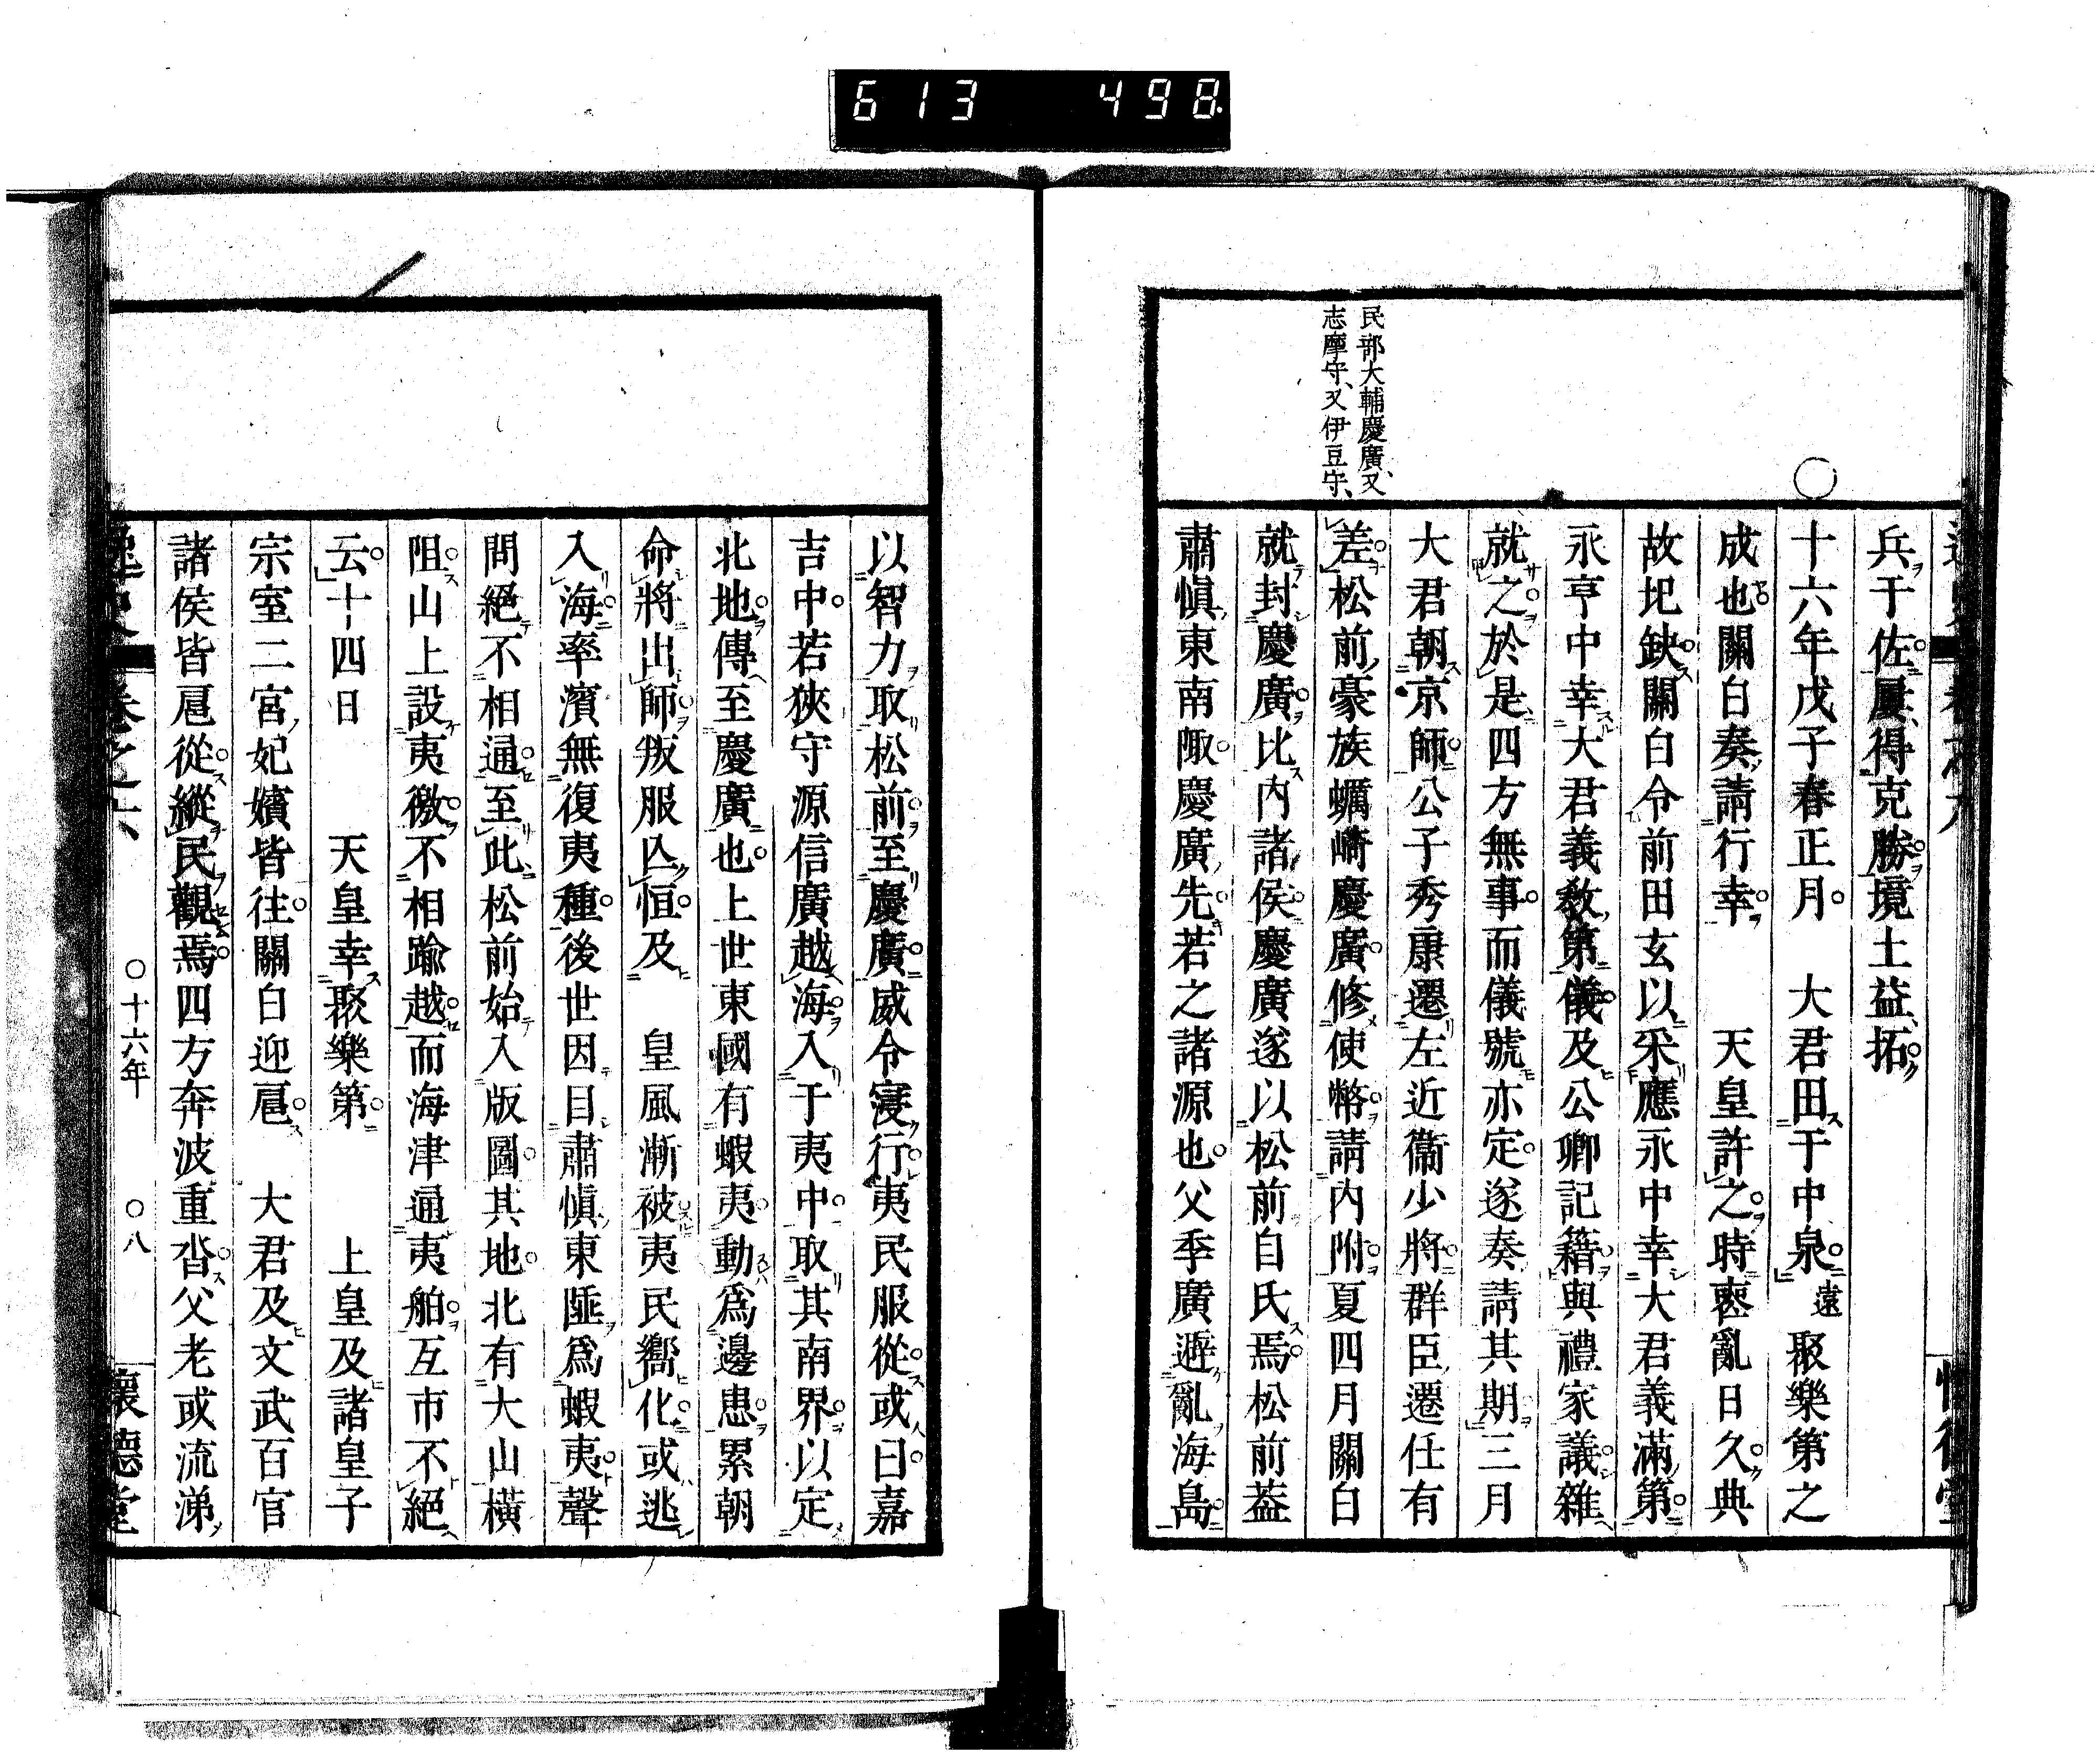 613 498
民部大輔慶廣、又
志摩守、又伊豆守、
兵于佐屢得克勝境土益拓
○
十六年戊子春正月 大君田于中泉遠 聚樂第之
成也關白奏請行幸 天皇許之時喪亂日久典
故圯缺關白令前田玄以采應永中幸大君義滿第
永亨中幸大君義教第儀及公卿記籍與禮家議雜
就之於是四方無事而儀號亦定遂奏請其期三月
大君朝京師公子秀康遷左近衞少將群臣遷任有
差松前豪族蠣崎慶廣修使幣請內附夏四月關白
就封慶廣比內諸侯慶廣遂以松前自氏焉松前葢
肅愼東南陬慶廣先若之諸源也父季廣避亂海島
以智力取松前至慶廣威令寖行夷民服從或曰嘉
吉中若狹守源信廣越海入于夷中取其南界以定
北地傳至慶廣也上世東國有蝦夷動爲邊患累朝
命將出師叛服亾恒及 皇風漸被夷民嚮化或逃
入海率濱無復夷種後世因目肅愼東陲爲蝦夷聲
問絕不相通至此松前始入版圖其地北有大山橫
阻山上設夷徼不相踰越而海津通夷舶互市不絕
云十四日 天皇幸聚樂第 上皇及諸皇子
宗室二宮妃嬪皆往關白迎扈 大君及文武百官
諸侯皆扈從縱民觀焉四方奔波重沓父老或流涕
逸史 卷之六 ○十六年 ○八 懷德堂